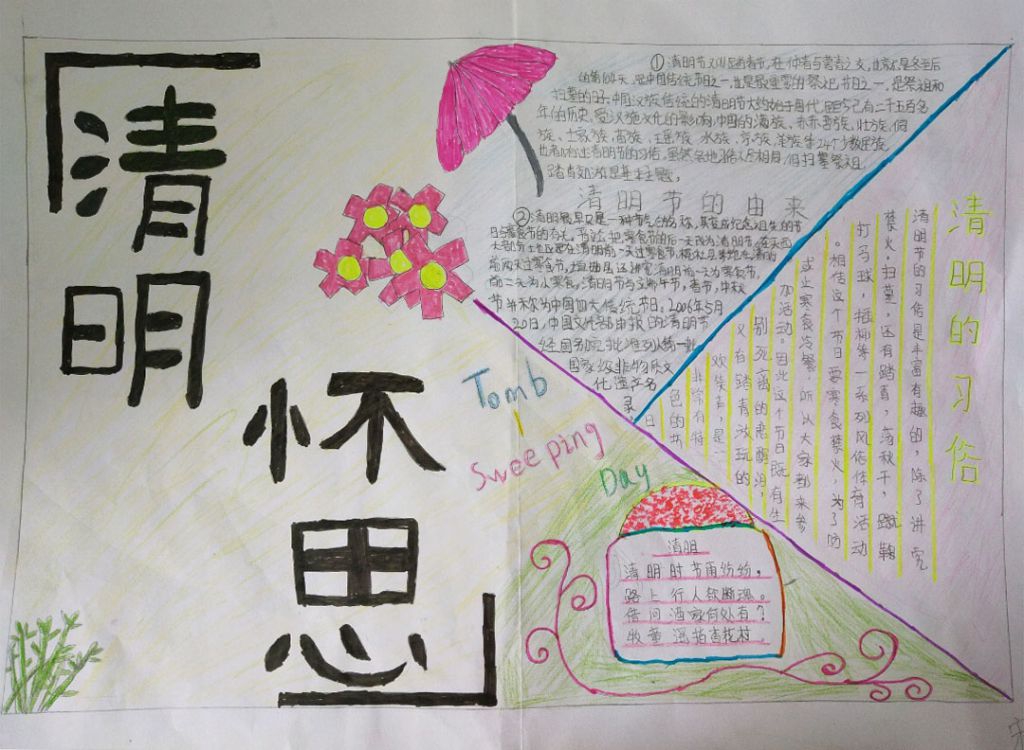 清明
怀思
①清明节又叫踏青节,在仲春与暮春之交,也就是冬至后
的第104天,是中国传统节日之一,也是最重要的祭祀节日之一,是祭祖和
扫墓的日子。中国汉族传统的清明节大约始于周代,距今已有二千五百多
年的历史,受汉族文化的影响,中国的满族、赫哲族、壮族、侗
族、土家族、苗族、瑶族、水族、京族、羌族等24个少数民族
也都有过清明节的习俗。虽然各地习俗不相同,但扫墓祭祖、
踏青郊游是基本主题。
清明节的由来
②清明最早只是一种节气的名称,其变成纪念祖先的节
日与寒食节有关。
前两天过寒食节,
前二天为小寒食。清明节与端午节、春节、中秋
节并称为中国四大传统节日。2006年5月
20日,中国文化部申报的清明节
经国务院批准列入第一批
国家级非物质文
化遗产名
录。
清明的习俗
清明节的习俗是丰富有趣的,除了讲究
禁火、扫墓,还有踏青、荡秋千、蹴鞠、
打马球、插柳等一系列风俗体育活动
。相传这个节日要寒食禁火,为了防
止寒食冷餐,所以大家都来参
加活动。因此这个节日既有生
别死离的悲酸泪,
又有踏青游玩的
欢笑声,是一
非常有特
色的节
日
Tomb
Sweeping
Day
清明
清明时节雨纷纷,
路上行人欲断魂。
借问酒家何处有?
牧童遥指杏花村